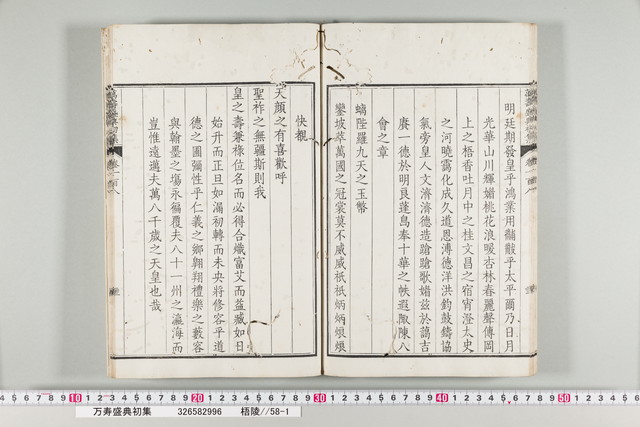 明廷期發皇乎鴻業用黼黻乎太平爾乃日月
光華山川輝媚桃花浪暖杏林春麗聲傳岡
上之梧香吐月中之桂文昌之宿宵澄太史
之河曉靄化成久道恩溥德洋洪鈞鼓鑄協
氣旁皇人文濟濟德造蹌蹌歌媚茲於藹吉
賡一德於明良蓬島奉十華之帙遐陬陳八
會之章
螭陛羅九天之玉幣
鑾坡萃萬國之冠裳莫不威威祇祇炳炳烺烺
快覩
天顏之有喜歡呼
聖祚之無疆斯則我
皇之壽兼祿位名而必得合熾富艾而益臧如日
始升而正旦如漏初轉而未央將修容乎道
德之圃彌性乎仁義之鄉翱翔禮樂之藪容
與翰墨之場永徧覆夫八十一州之瀛海而
豈惟遠邁夫萬八千歲之天皇也哉
万寿盛典初集 326582996 梧陵//58-1